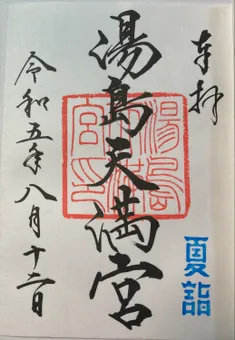 奉拝
湯島天満宮
湯島天満宮印
令和五年八月十二日
夏詣